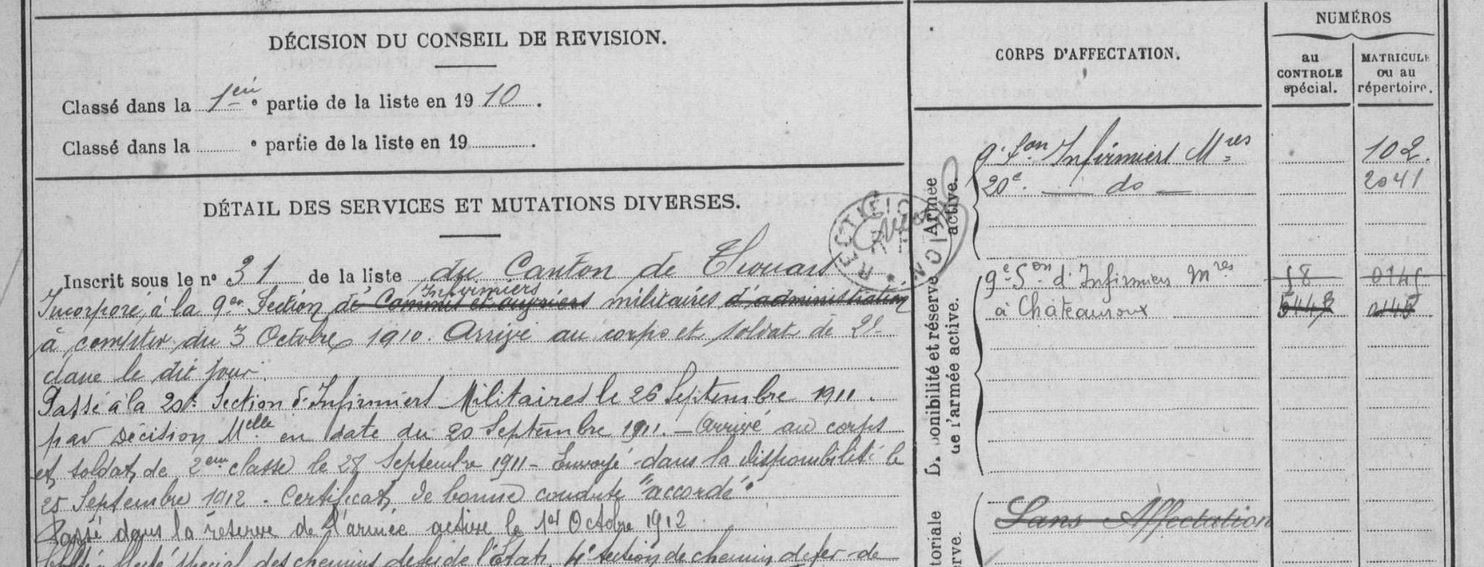 DÉCISION DU CONSEIL DE REVISION.
Classé dans la 1ere partie de la liste en 1910.
Classé dans la e partie de la liste en 19 .
DÉTAIL DES SERVICES ET MUTATIONS DIVERSES.
Inscrit sous le n° 31 de la liste du Canton de Thouars
Infirmiers
Incorporé à la 9e Section de Commis et ouvriers militaires d'administration
à compter du 3 Octobre 1910. Arrivé au corps et soldat de 2e
classe le dit jour
Passé à la 20e Section d'Infirmiers Militaires le 26 Septembre 1911.
par Décision Melle en date du 20 Septembre 1911. — Arrivé au corps
et soldat de 2eme classe le 28 Septembre 1911 - Envoyé dans la disponibilité le
25 Septembre 1912. Certificat de bonne conduite "accordé".
Passé dans la réserve de l'armée active le 1er Octobre 1912
spécial des chemins de fer de l'État, 4e section de chemin de fer de
RECTIFICATION
CORPS D'AFFECTATION.
NUMÉROS
au CONTROLE spécial.
MATRICULE ou au répertoire.
Armée active.
9e Son Infirmiers Mres 102.
20e. — do — 2041
Disponibilité et réserve de l'armée active.
9e Son d'Infirmiers Mres 58 0145
à Châteauroux 0145
toriale
erve.
Sans Affectation